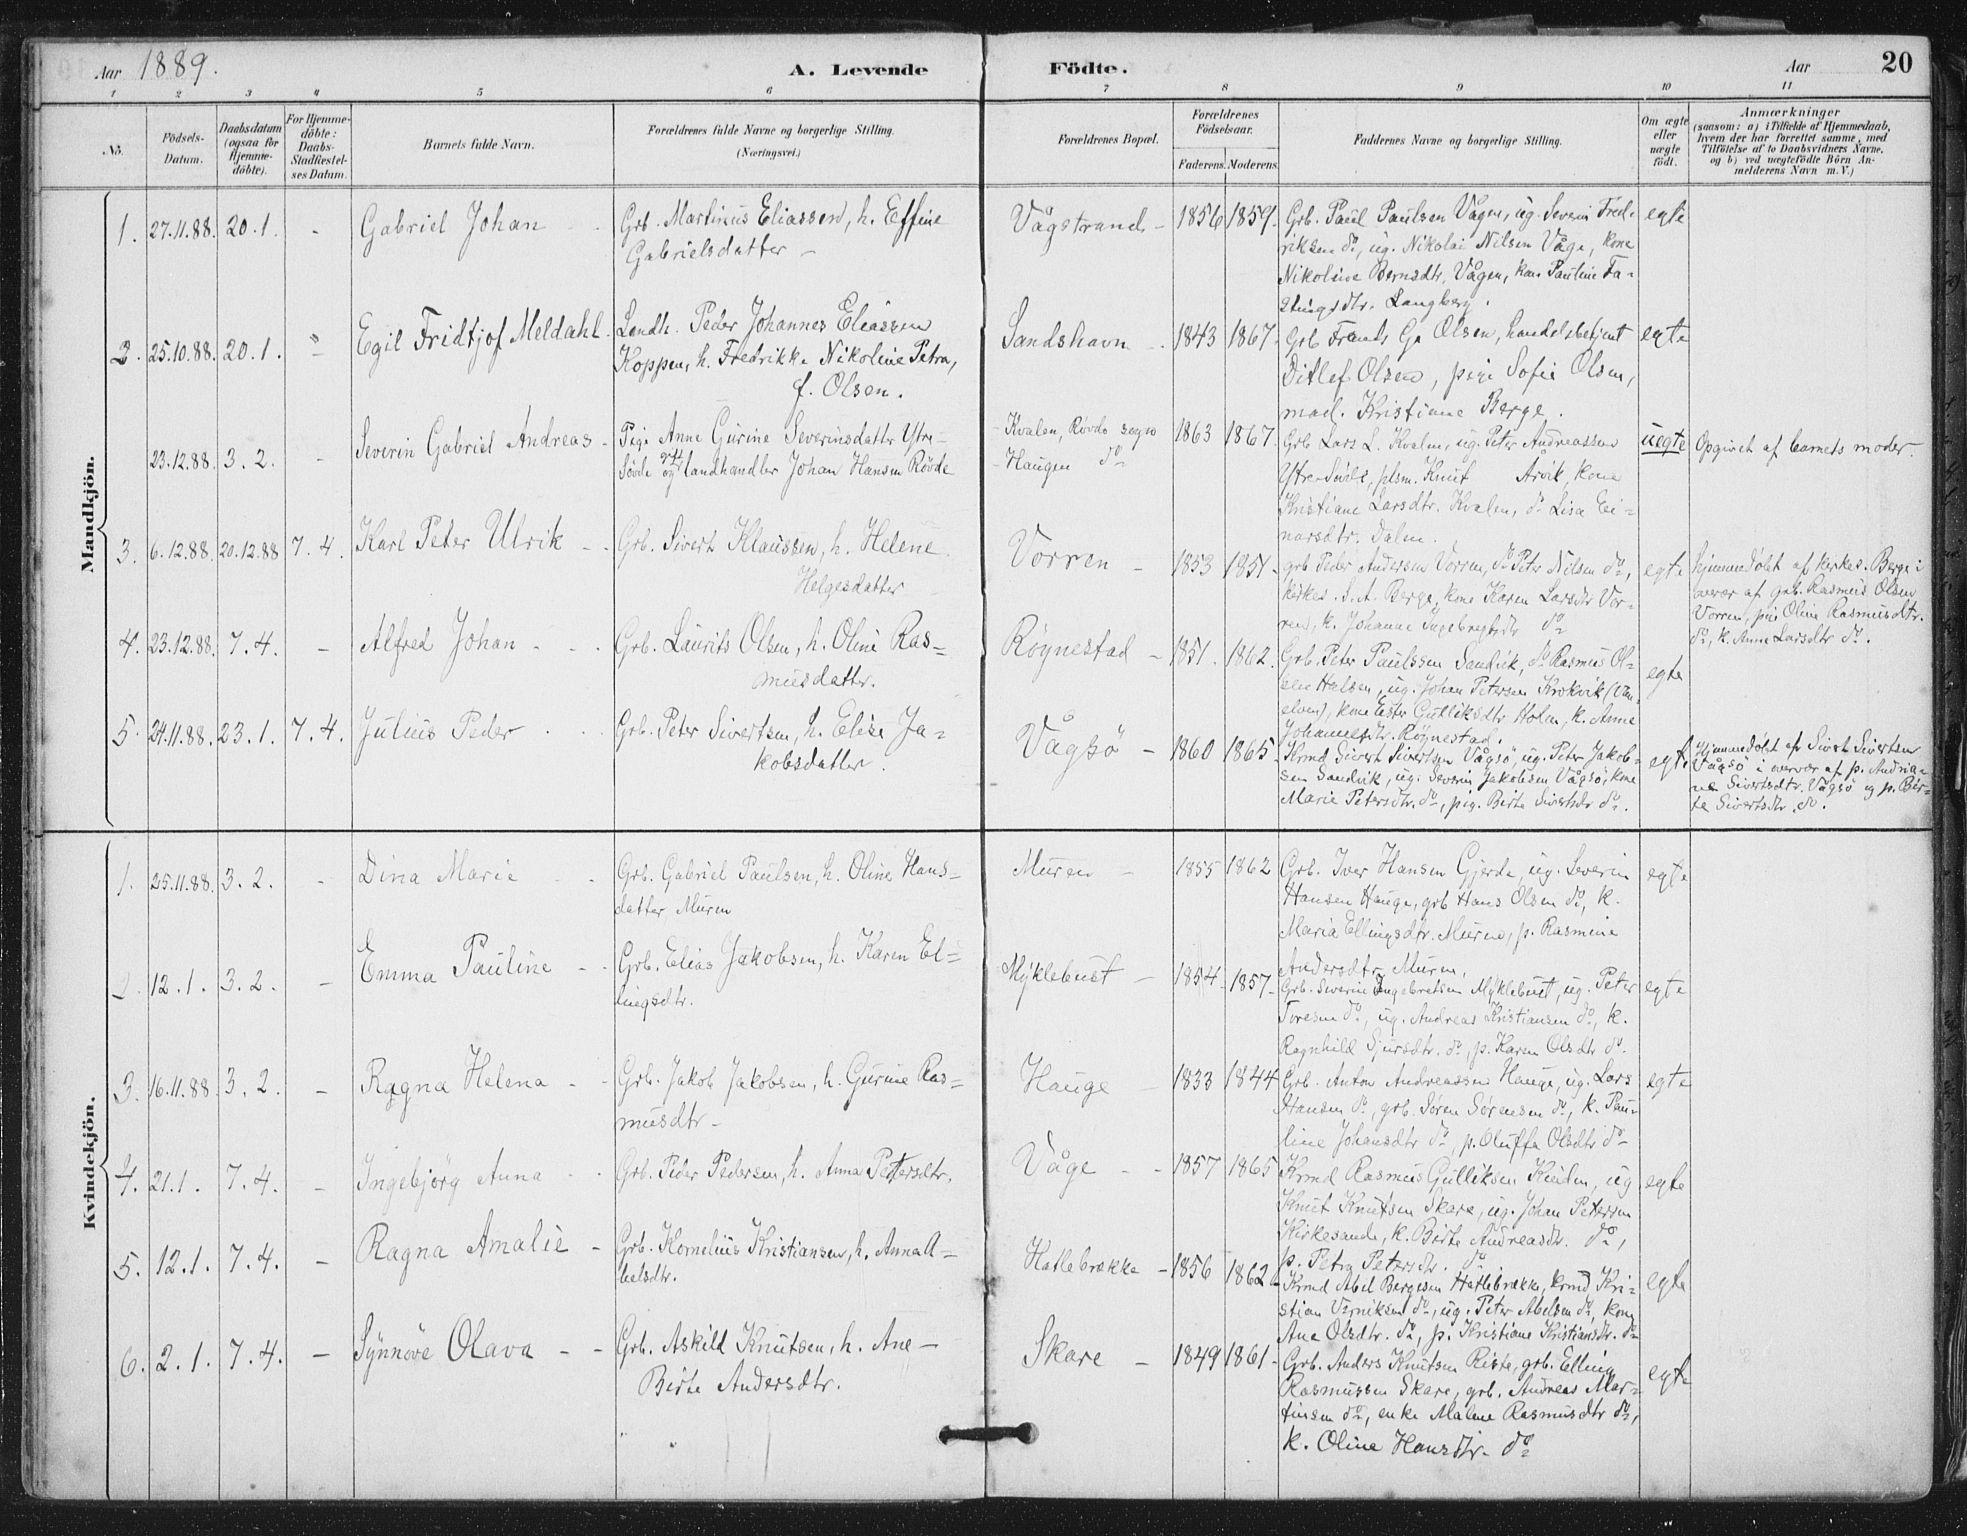 Aar 1889.
A. Levende Födte.
Aar 20
1 2 3 4 5 6 7 8 9 10 11
No.
Födsels-
Datum.
Daabsdatum
(ogsaa for
Hjemme-
döbte).
For Hjemme-
döbte:
Daabs-
Stadfæstel-
ses Datum.
Barnets fulde Navn.
Forældrenes fulde Navne og borgerlige Stilling.
(Næringsvei.)
Forældrenes Bopæl.
Forældrenes
Födselsaar.
Faderens. Moderens.
Faddernes Navne og borgerlige Stilling.
Om ægte
eller
uægte
födt.
Anmærkninger
(saasom: a) i Tilfælde af Hjemmedaab,
hvem der har forrettet samme, med
Tilföielse af to Daabsvidners Navne,
og b) ved uægtefödte Börn An-
melderens Navn m. V.)
Mandkjön.
1. 27.11.88. 20.1. - Gabriel Johan
Grb. Martinus Eliassen, h. Effine
Gabrielsdatter -
Vågstrand - 1856 1859.
Grb. Paul Paulsen Vågen, ug. Severin Fred-
riksen do, ug. Nikolai Nilsen Våge, kone
Nikoline Berns­dtr. Vågen, kone Pauline Fa-
stingsdtr. Langberg.
egte
2. 25.10.88. 20.1. - Egil Fridtjof Meldahl.
Landh. Peder Johannes Eliassen
Koppen, h. Fredrikke Nikoline Petra,
f. Olsen.
Sandshavn - 1843 1867.
Grb Frants Olsen, handelsbetjent
Ditlef Olsen, pige Sofie Olsen,
mad. Kristiane Berge.
egte
23.12.88. 3.2. - Severin Gabriel Andreas -
Pige Anne Gurine Severinsdatter Ytre-
Søvde og landhandler Johan Hansen Røvde
- Kvalen, Røvde sogn
- Haugen do
1863 1867.
Grb Lars L. Kvalen, ug. Peter Andreassen
Ytre-Søvde, plsm. Knut Årvik, kone
Kristiane Larsdtr. Kvalen, do Lisa Ei-
narsdtr. Dalen.
uegte
Opgivet af barnets moder.
3. 6.12.88. 20.12.88 7.4. Karl Peter Ulrik -
Grb. Sivert Klaussen, h. Helene
Helgesdatter
Vorren - 1853 1851 -
grb Peder Andersen Vorren, do Peter Nilsen do,
kirkes. S. A. Berge, kone Karen Larsdtr Vor-
ren, k. Johanne Ingebregtsdtr do
egte
hjemmedøbt af kirkes. Berge i
overvær af grb. Rasmus Olsen
Vorren, pige Oline Rasmusdtr.
do, k. Anne Larsdtr do.
4. 23.12.88. 7.4. - Alfred Johan - - -
Grb. Laurits Olsen, h. Oline Ras-
musdatter.
Röynestad - 1851. 1862.
Grb. Peter Paulssen Sandvik, do Rasmus Ol-
sen Halsen, ug. Johan Petersen Krokvik (Van-
elven), kone Ester Gulliksdtr Holen, k. Anne
Johannesdtr. Röynestad.
egte
5. 24.11.88. 23.1. 7.4. Julius Peder
Grb. Peter Sivertsen, h. Elise Ja-
kobsdatter.
Vågsö - 1860 1865 -
Krmd Sivert Sivertsen Vågsö, ug. Peter Jakob-
sen Sandvik, ug. Severin Jakobsen Vågsö, kone
Marie Petersdtr. do, pige Birte Sivertsdtr do.
egte
Hjemmedøbt af Sivert Sivertsen
Vågsö i overvær af p. Andria-
ne Sivertsdtr. Vågsö og p. Bir-
te Sivertsdtr do.
Kvindekjön.
1. 25.11.88. 3.2. - Dina Marie
Grb. Gabriel Paulsen, h. Oline Hans-
datter Muren
Muren - 1855 1862
Grb. Iver Hansen Gjerde, ug. Severin
Hansen Hauge, grb Hans Olsen do, k.
Maria Ellingsdtr. Muren, p. Rasmine
Andersdtr Muren.
egte
2. 12.1. 3.2. - Emma Pauline -
Grb. Elias Jakobsen, h. Karen El-
lingsdtr.
Myklebust - 1854 - 1857 -
Grb. Severin Ingebretsen Myklebust, ug. Peter
Toresen do, ug. Andreas Kristiansen do, k.
Ragnhild Sjursdtr. do, p. Karen Olsdtr do.
egte
3. 16.11.88 3.2. - Ragna Helena -
Grb. Jakob Jakobsen, h. Gurine Ras-
musdtr -
Hauge 1833 1844
Grb. Anton Andreassen Hauge, ug. Lars
Hansen do, grb. Søren Sørensen do, k. Pau-
line Johansdtr do, p. Oluffa Olsdtr do
egte
4. 21.1. 7.4. - Ingebjörg Anna
Grb. Peder Pedersen, h. Anna Petersdtr.
Våge - - 1857 1865
Krmd Rasmus Gulliksen Kinden, ug
Knut Knutsen Skare, ug. Johan Petersen
Kirkesande, k. Birte Andreasdtr. do,
p. Petra Petersdtr. do
egte
5. 12.1. 7.4. - Ragna Amalie -
Grb. Kornelius Kristiansen, h. Anna A-
belsdtr.
Hatlebrække - 1856 1862 -
Krmd Abel Bergesen Hatlebrække, krmd Kri-
stian Verniksen do, ug. Peter Abelsen do, kone
Ane Olsdtr. do, p. Kristiane Kristiansdtr. do
egte
6. 2.1. 7.4. - Synnöve Olava - -
Grb. Askild Knutsen, h. Ane -
Birte Andersdtr.
Skare - 1849 1861 -
Grb. Anders Knutsen Riste, grb. Elling
Rasmussen Skare, grb. Andreas Mar-
tinsen do, enke Malene Rasmusdtr do,
k. Oline Hansdtr - do
egte